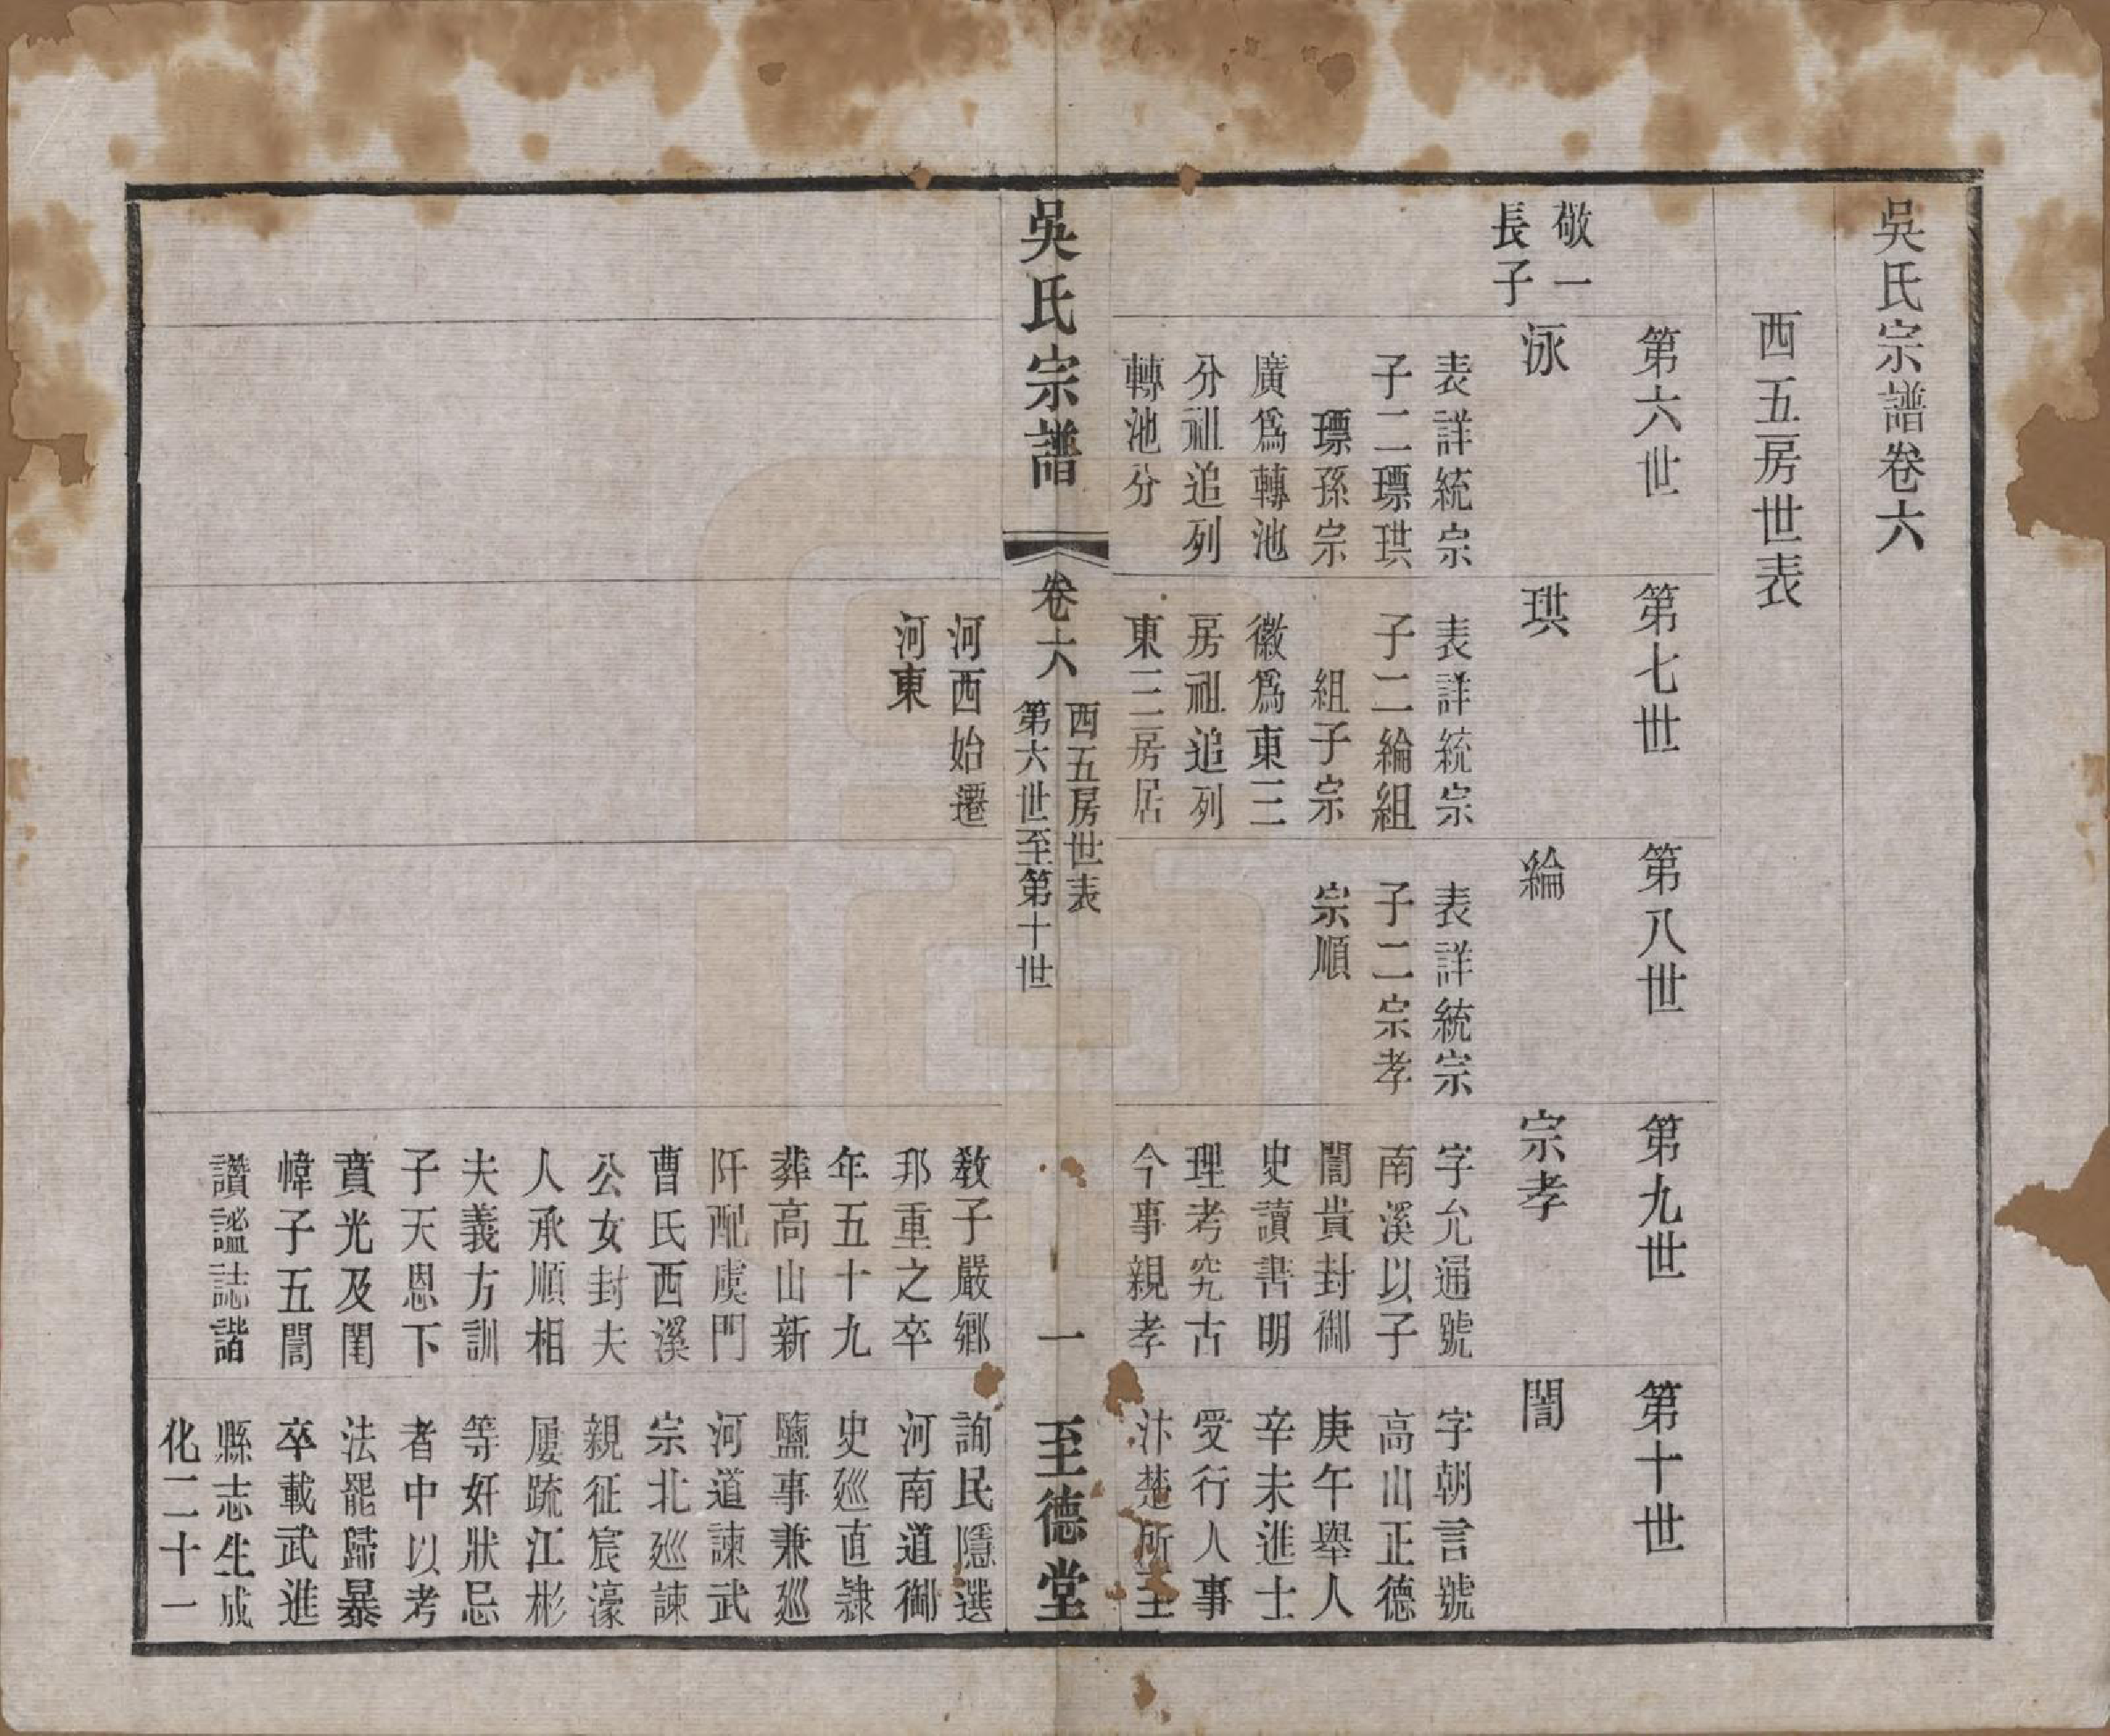 吳氏宗譜卷六
西五房世表
第六世
第七世
第八世
第九世
第十世
敬一
長子
泳
表詳統宗
子二瓢珙
瓢孫宗
廣為轉池
分祖追列
轉池分
珙
表詳統宗
子二綸組
組子宗
徽為東三
房祖追列
東三房居
河西始遷
河東
綸
表詳統宗
子二宗孝
宗順
宗孝
字允通號
南溪以子
誾貴封御
史讀書明
理考究古
今事親孝
教子嚴鄉
邦重之卒
年五十九
葬高山新
阡配虞門
曹氏西溪
公女封夫
人承順相
夫義方訓
子天恩下
賁光及閨
幃子五誾
讚謐誌諧
誾
字朝言號
高山正德
庚午舉人
辛未進士
受行人事
汴楚所至
詢民隱選
河南道御
史巡直隸
鹽事兼巡
河道諫武
宗北巡諫
親征宸濠
屢疏江彬
等奸狀忌
者中以考
法罷歸暴
卒載武進
縣志生成
化二十一
吳氏宗譜
卷六
西五房世表
第六世至第十世
一
至德堂